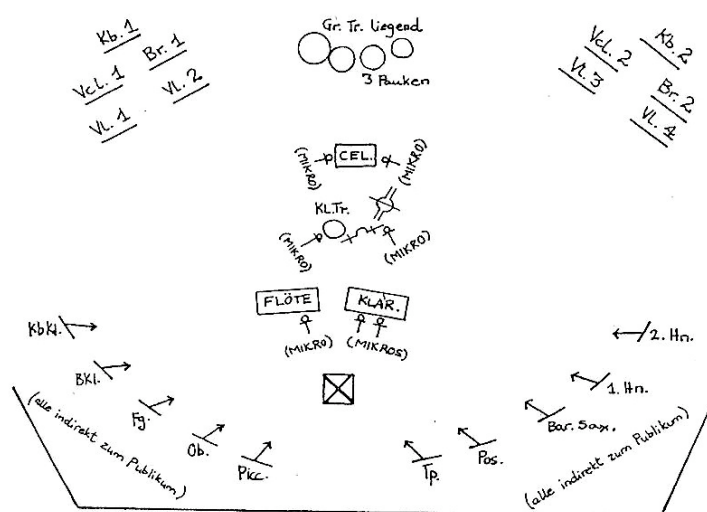 Kb. 1
Br. 1
Vcl. 1
Vl. 2
Vl. 1
Gr. Tr. liegend
3 Pauken
Kb. 2
Vcl. 2
Vl. 3
Br. 2
Vl. 4
(MIKRO)
CEL.
(MIKRO)
KL.Tr.
(MIKRO)
(MIKRO)
FLÖTE
KLAR.
(MIKRO)
(MIKROS)
KbKl.
BKl.
Fg.
Ob.
Picc.
(alle indirekt zum Publikum)
2. Hn.
1. Hn.
Bar. Sax.
Pos.
Tp.
(alle indirekt zum Publikum)